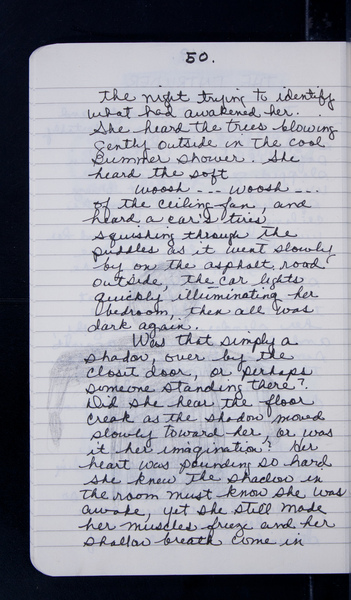 50.
the night trying to identify
what had awakened her.
She heard the trees blowing
gently outside in the cool
summer shower. She
heard the soft
woosh --- woosh ---
of the ceiling fan, and
heard a car's tires
squishing through the
puddles as it went slowly
by on the asphalt road
outside, the car lights
quickly illuminating her
bedroom, then all was
dark again.
Was that simply a
shadow, over by the
closet door, or perhaps
someone standing there?
Did she hear the floor
creak as the shadow moved
slowly toward her, or was
it her imagination? Her
heart was pounding so hard
she knew the shadow in
the room must know she was
awake, yet she still made
her muscles freeze and her
shallow breath come in